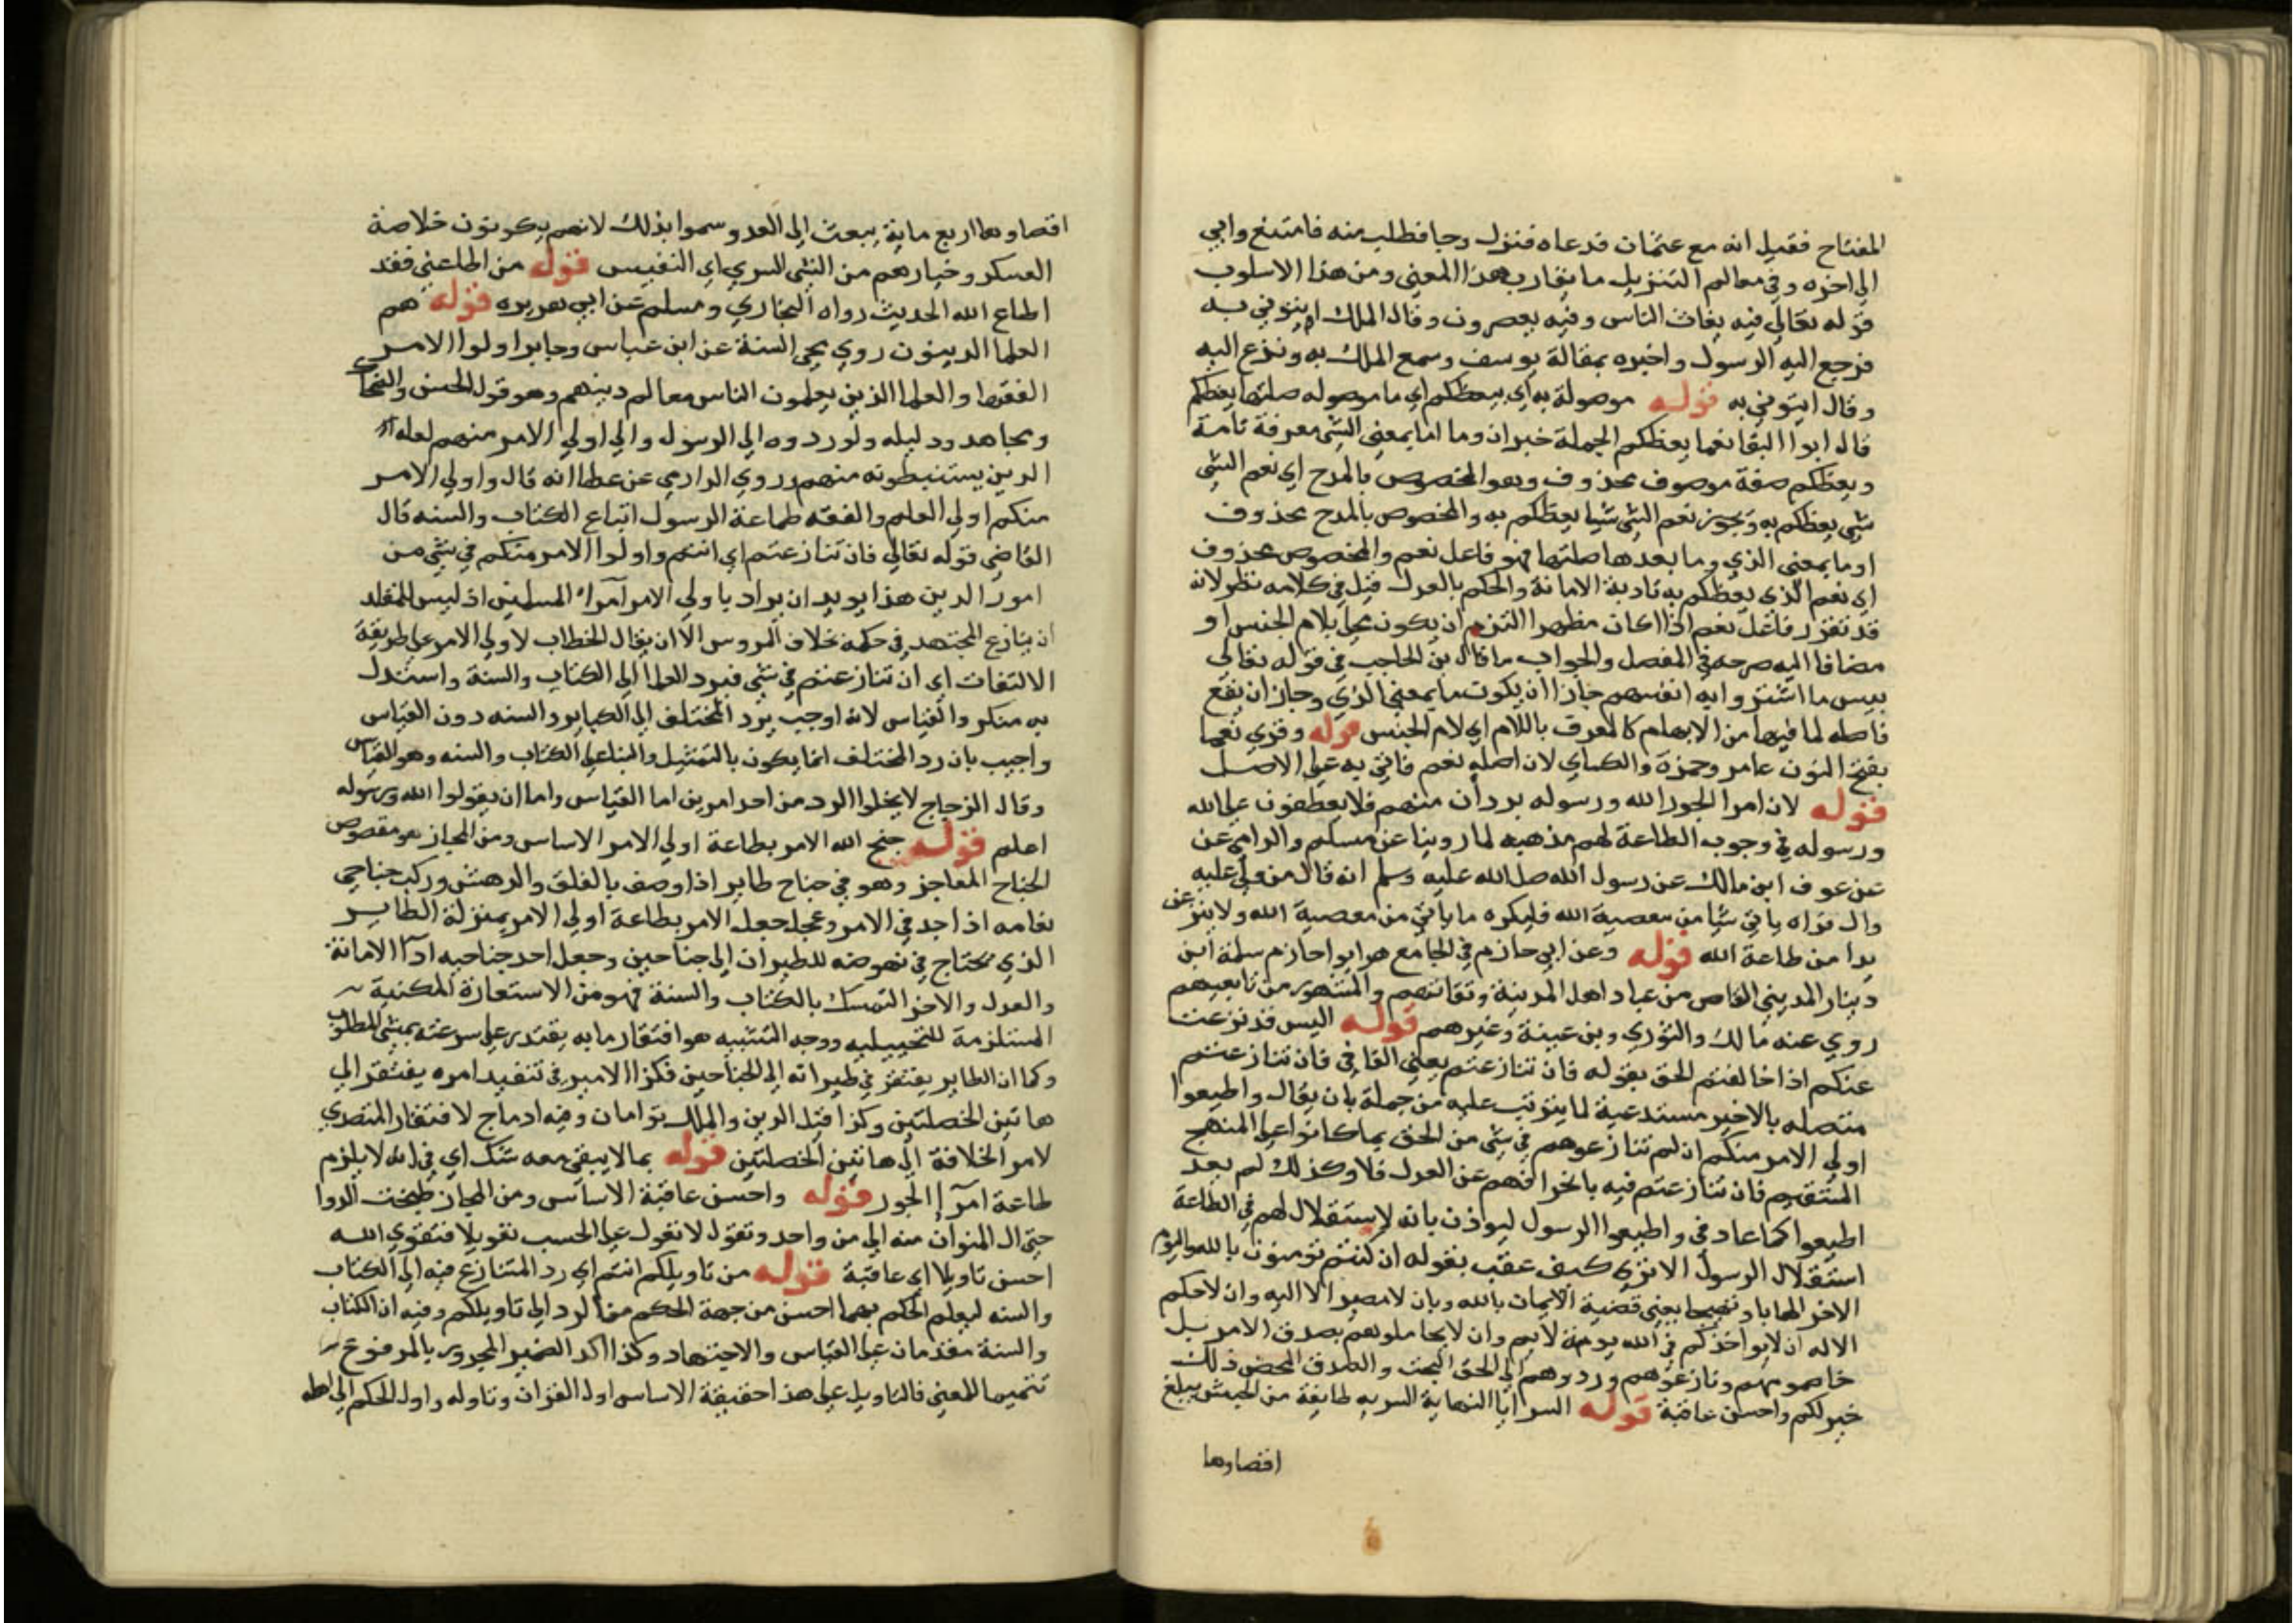 المفتاح فقيل انه مع عثمان قد عاه فنزل وحيا فطلب منه فامتنع وابي
الي اخره وفي معالم التنزيل ما يقارب هذا المعني ومن هذا الاسلوب
قوله تعالي فيه يغاث الناس وفيه يعصرون وقال الملك ايتوني به
فرجع اليه الرسول واخبره بمقالة يوسف وسمع الملك به ونزع اليه
وقال ايتوني به قوله موصولة به اي يعظكم اي ما موصوله صلتها يعظكم
قاله ابوا البقا نعما يعظكم الجملة خبر ان وما اما بمعني الشي معرفة تامة
ويعظكم صفة موصوف محذوف وهو المخصوص بالمدح اي نعم الشي
شي يعظكم به ويجوز نعم الشي شيا يعظكم به والمخصوص بالمدح محذوف
او ما بمعني الذي وما بعدها صلتها فهو فاعل نعم والمخصوص محذوف
اي نعم الذي يعظكم به تادية الامانة والحكم بالعدل قيل في كلامه نظر لانه
قد تقرر فاعل نعم اذا كان مظهرا التزم ان يكون محلي بلام الجنس او
مضافا اليه صرح به في المفصل والجواب ما قال بن الحاجب في قوله تعالي
بيس ما اشتروا به انفسهم جاز ان يكون ما بمعني الذي وجاز ان يقع
فاعله لما فيها من الابهام كالمعرف باللام اي لام الجنس قوله وقري نعما
بفتح النون عامر وحمزة والكساي لان اصله نعم فاتي به علي الاصل
قوله لان امرا الجور الله ورسوله بردان منهم فلا يعطفون علي الله
ورسوله في وجوب الطاعة لهم مذهبه لما روينا عن مسلم والدارمي عن
عن عوف ابن مالك عن رسول الله صلي الله عليه وسلم انه قال من ولي عليه
وال فراه ياتي شيا من معصية الله فليكره ما ياتي من معصية الله ولا ينزعن
يدا من طاعة الله قوله وعن ابي حازم في الجامع هو ابوا حازم سلمة ابن
دينار المديني القاص من عباد اهل المدينة وثقاتهم والمشهور من تابعيهم
روي عنه مالك والثوري وبن عيينة وغيرهم قوله اليس قد نزعت
عنكم اذا خالفتم الحق بقوله فان تنازعتم يعني الفا في فان تنازعتم
متصله بالاخير مستدعية لما يترتب عليه من جملة بان يقال واطيعوا
اولي الامر منكم ان لم تنازعوهم في شي من الحق بما كانوا علي المنهج
المستقيم فان تنازعتم فيه بانحرافهم عن العدل فلا وكذلك لم يعد
اطيعوا كما عاد في واطيعوا الرسول ليوذن بانه لا استقلال لهم في الطاعة
استقلال الرسول الا تري كيف عقب بقوله ان كنتم تومنون بالله واليوم
الاخر الهابا وتهييجا يعني قضية الايمان بالله وبان لا مصير الا اليه وان لا حكم
الا له ان لا يواخذكم في الله لومة لايم وان لا يجاملوهم بصدق الامر بل
خاصموهم ونازعوهم وردوهم الي الحق البحت والصدق المحض ذلك
خير لكم واحسن عاقبة قوله السرايا النهاية السريه طايفة من الجيش يبلغ
اقصاوها
اقصاوها اربع ماية يبعث الي العدو وسموا بذلك لانهم يكونون خلاصة
العسكر وخيارهم من الشي السري اي النفيس قوله من اطاعني فقد
اطاع الله الحديث رواه البخاري ومسلم عن ابي هريره قوله هم
العلما الدينون روي محي السنة عن ابن عباس وجابر اولوا الامر
الفقها والعلما الذين يعلمون الناس معالم دينهم وهو قول الحسن والضحاك
ومجاهد ودليله ولو ردوه الي الرسول والي اولي الامر منهم لعلمه
الذين يستنبطونه منهم وروي الدارمي عن عطا انه قال واولي الامر
منكم اولي العلم والفقه طاعة الرسول اتباع الكتاب والسنه قال
القاضي قوله تعالي فان تنازعتم اي انتم واولوا الامر منكم في شي من
امور الدين هذا يويد ان يراد باولي الامر امراء المسلمين اذ ليس للمقلد
ان ينازع المجتهد في حكمه خلاف المروس الا ان يقال الخطاب لاولي الامر علي طريقة
الالتفات اي ان تنازعتم في شي فيرد العلما الي الكتاب والسنة واستدل
به منكروا القياس لانه اوجب برد المختلف الي الكتاب والسنه دون القياس
واجيب بان رد المختلف انما يكون بالتمثيل والبنا علي الكتاب والسنه وهو القياس
وقال الزجاج لا يخلوا الرد من احد امرين اما القياس واما ان يقولوا الله ورسوله
اعلم قوله جنح الله الامر بطاعة اولي الامر الاساس ومن المجاز هو مقصوص
الجناح للعاجز وهو في جناح طاير اذا وصف بالقلق والدهش وركب جناحي
نعامه اذا جد في الامر وعجل جعل الامر بطاعة اولي الامر بمنزلة الطاير
الذي يحتاج في نهوضه للطيران الي جناحين وجعل احد جناحيه ادا الامانة
والعدل والاخر التمسك بالكتاب والسنة فهو من الاستعارة المكنية
المستلزمة للتخييليه ووجه التشبيه هو افتقار ما به يقتدر علي سرعته بمشي المطلوب
وكما ان الطاير يفتقر في طيرانه الي الجناحين فكذا الامير في تنفيذ امره يفتقر الي
هاتين الخصلتين وكذا قيل الدين والملك توامان وفيه ادماج لافتقار المتصدي
لامر الخلافة الي هاتين الخصلتين قوله بما لا يبقي معه شك اي في انه لا يلزم
طاعة امرا الجور قوله واحسن عاقبة الاساس ومن المجاز طبخت الدوا
حتي ال المنوان منه الي من واحد وتقول لا تعول علي الحسب تعويلا فتقوي الله
احسن تاويلا اي عاقبة قوله من تاويلكم انتم اي رد المتنازع فيه الي الكتاب
والسنه ليعلم الحكم بهما احسن من جهة الحكم من الرد الي تاويلكم وفيه ان الكتاب
والسنة مقدمان علي القياس والاجتهاد وكذا اكد الضمير المجرور بالمرفوع
تتميما للمعني فالتاويل علي هذا حقيقة الاساس اول القران وتاوله واول الحكم الي اهله